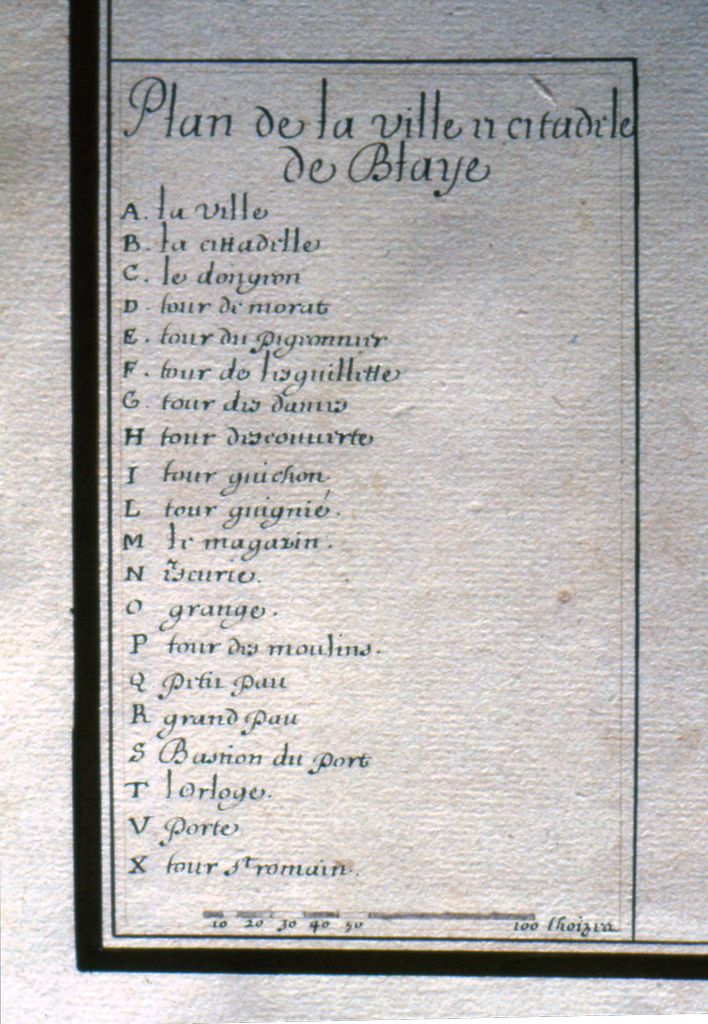 Plan de la ville et citadele
de Blaye
A. la ville
B. la cittadelle
C. le dongeon
D. tour de morat
E. tour du pigeonnier
F. tour de lesguillette
G. tour des dames
H tour descouverte
I tour guichon
L tour guignié.
M le magazin.
N Escurie.
O grange.
P tour des moulins.
Q petit pau
R grand pau
S Bastion du port
T lOrloge.
V Porte
X tour St romain.
10 20 30 40 50 100 thoizes